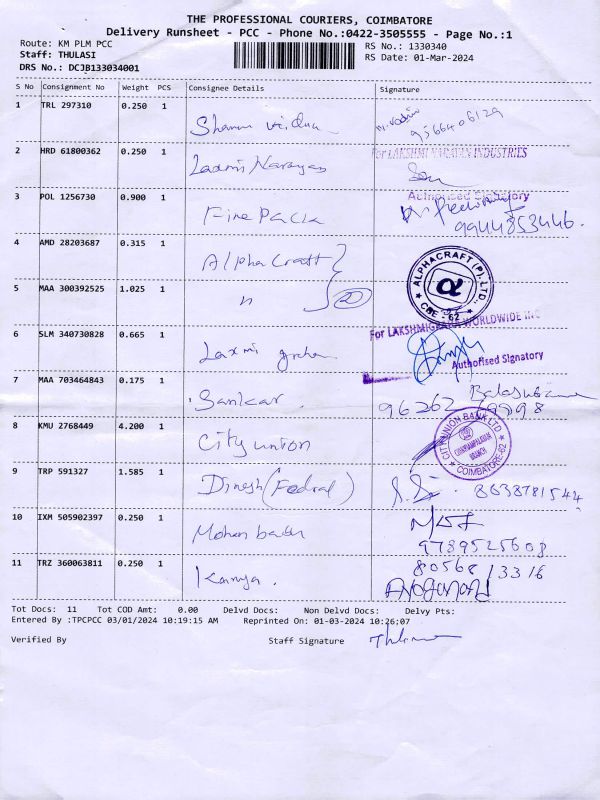 THE PROFESSIONAL COURIERS, COIMBATORE
Delivery Runsheet - PCC - Phone No.:0422-3505555 - Page No.:1
Route: KM PLM PCC
RS No.: 1330340
Staff: THULASI
RS Date: 01-Mar-2024
DRS No.: DCJB133034001
S No Consignment No Weight PCS Consignee Details Signature
1 TRL 297310 0.250 1
9566406129
2 HRD 61800362 0.250 1 Laxmi Narayas
For LAKSHMI INDUSTRIES
Authorised Signatory
3 POL 1256730 0.900 1 Fine Pack
9944853446.
4 AMD 28203687 0.315 1 Alpha Craft
ALPHACRAFT (P) LTD., α ★ CBE - 62 ★
5 MAA 300392525 1.025 1 "
6 SLM 340730828 0.665 1 Laxmi
For LAKSHMIGRAHA WORLDWIDE INC
Authorised Signatory
7 MAA 703464843 0.175 1 Sankar
96262
8 KMU 2768449 4.200 1 City union
CITY UNION BANK LTD BRANCH ★ COIMBATORE-62 ★
9 TRP 591327 1.585 1 Dinesh (Fedral)
8638781544
10 IXM 505902397 0.250 1 Mohan
9789525608
11 TRZ 360063811 0.250 1 Kanya.
80568 / 3316
Tot Docs: 11 Tot COD Amt: 0.00 Delvd Docs: Non Delvd Docs: Delvy Pts:
Entered By :TPCPCC 03/01/2024 10:19:15 AM Reprinted On: 01-03-2024 10:26:07
Verified By Staff Signature